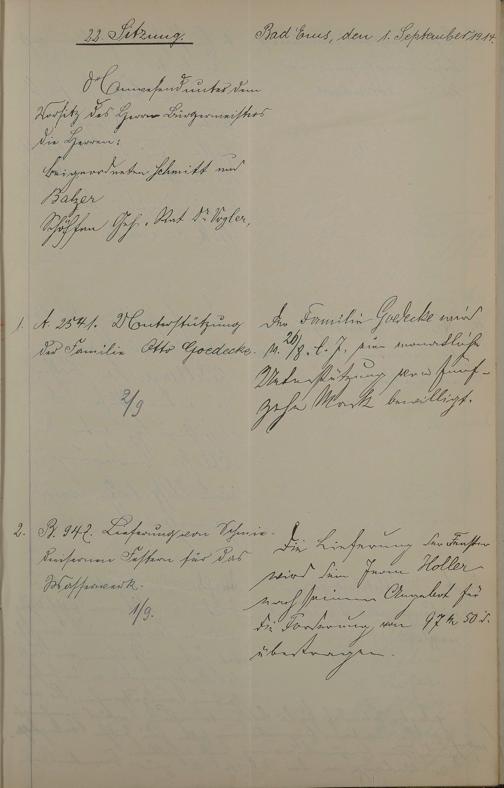 22. Sitzung.
Bad Ems, den 1. September 1914.
Anwesend unter dem
Vorsitz des Herrn Bürgermeisters
die Herren:
Beigeordneten Schmitt und
Balzer
Schöffen Geh. Rat Dr Vogler,
1. A. 2541. Unterstützung
der Familie Otto Goedecke.
2/9
Der Familie Goedecke wird
v. 26/8. l. J. eine monatliche
Unterstützung von fünf-
zehn Mark bewilligt.
2. B. 942. Lieferung von Schmie-
deeisernen Festern für das
Wasserwerk.
1/9.
Die Lieferung der Fenster
wird dem Holler
nach seinem Angebot für
die Forderung von 97 M 50 d.
übertragen.